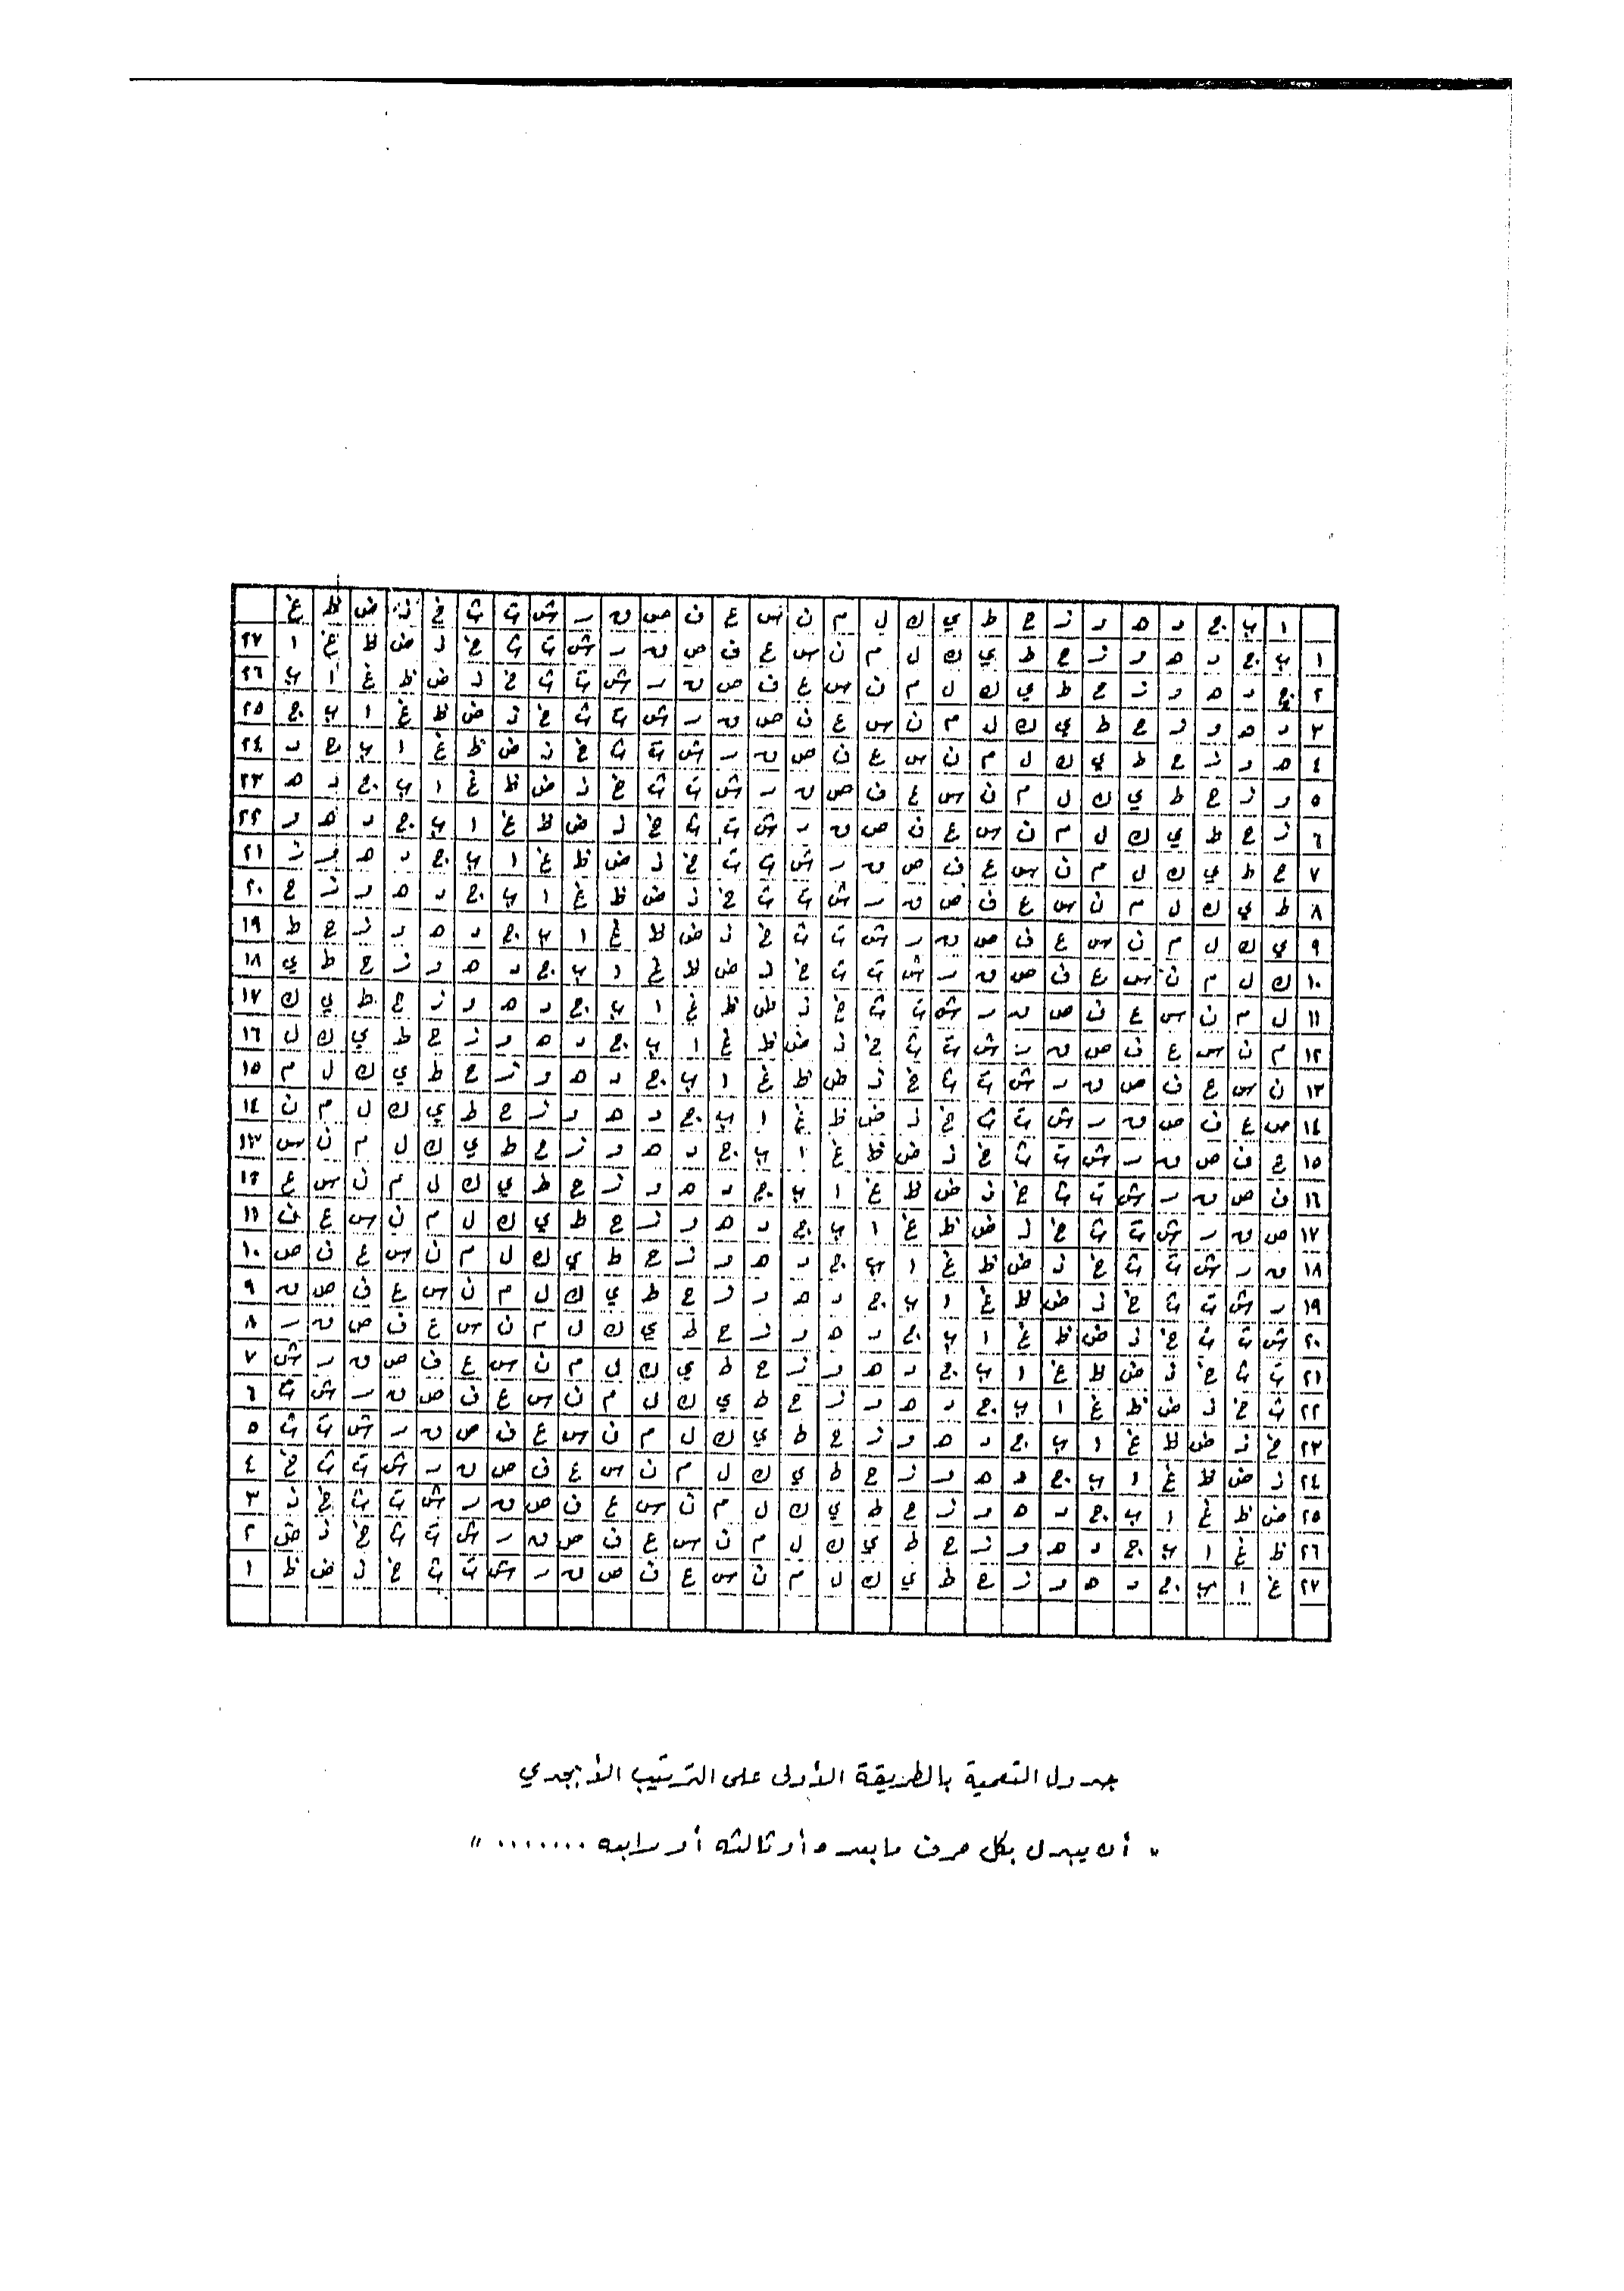 ا ب ج د ه و ز ح ط ي ك ل م ن س ع ف ص ق ر ش ت ث خ ذ ض ظ غ
١ ب ج د ه و ز ح ط ي ك ل م ن س ع ف ص ق ر ش ت ث خ ذ ض ظ غ ا ٢٧
٢ ج د ه و ز ح ط ي ك ل م ن س ع ف ص ق ر ش ت ث خ ذ ض ظ غ ا ب ٢٦
٣ د ه و ز ح ط ي ك ل م ن س ع ف ص ق ر ش ت ث خ ذ ض ظ غ ا ب ج ٢٥
٤ ه و ز ح ط ي ك ل م ن س ع ف ص ق ر ش ت ث خ ذ ض ظ غ ا ب ج د ٢٤
٥ و ز ح ط ي ك ل م ن س ع ف ص ق ر ش ت ث خ ذ ض ظ غ ا ب ج د ه ٢٣
٦ ز ح ط ي ك ل م ن س ع ف ص ق ر ش ت ث خ ذ ض ظ غ ا ب ج د ه و ٢٢
٧ ح ط ي ك ل م ن س ع ف ص ق ر ش ت ث خ ذ ض ظ غ ا ب ج د ه و ز ٢١
٨ ط ي ك ل م ن س ع ف ص ق ر ش ت ث خ ذ ض ظ غ ا ب ج د ه و ز ح ٢٠
٩ ي ك ل م ن س ع ف ص ق ر ش ت ث خ ذ ض ظ غ ا ب ج د ه و ز ح ط ١٩
١٠ ك ل م ن س ع ف ص ق ر ش ت ث خ ذ ض ظ غ ا ب ج د ه و ز ح ط ي ١٨
١١ ل م ن س ع ف ص ق ر ش ت ث خ ذ ض ظ غ ا ب ج د ه و ز ح ط ي ك ١٧
١٢ م ن س ع ف ص ق ر ش ت ث خ ذ ض ظ غ ا ب ج د ه و ز ح ط ي ك ل ١٦
١٣ ن س ع ف ص ق ر ش ت ث خ ذ ض ظ غ ا ب ج د ه و ز ح ط ي ك ل م ١٥
١٤ س ع ف ص ق ر ش ت ث خ ذ ض ظ غ ا ب ج د ه و ز ح ط ي ك ل م ن ١٤
١٥ ع ف ص ق ر ش ت ث خ ذ ض ظ غ ا ب ج د ه و ز ح ط ي ك ل م ن س ١٣
١٦ ف ص ق ر ش ت ث خ ذ ض ظ غ ا ب ج د ه و ز ح ط ي ك ل م ن س ع ١٢
١٧ ص ق ر ش ت ث خ ذ ض ظ غ ا ب ج د ه و ز ح ط ي ك ل م ن س ع ف ١١
١٨ ق ر ش ت ث خ ذ ض ظ غ ا ب ج د ه و ز ح ط ي ك ل م ن س ع ف ص ١٠
١٩ ر ش ت ث خ ذ ض ظ غ ا ب ج د ه و ز ح ط ي ك ل م ن س ع ف ص ق ٩
٢٠ ش ت ث خ ذ ض ظ غ ا ب ج د ه و ز ح ط ي ك ل م ن س ع ف ص ق ر ٨
٢١ ت ث خ ذ ض ظ غ ا ب ج د ه و ز ح ط ي ك ل م ن س ع ف ص ق ر ش ٧
٢٢ ث خ ذ ض ظ غ ا ب ج د ه و ز ح ط ي ك ل م ن س ع ف ص ق ر ش ت ٦
٢٣ خ ذ ض ظ غ ا ب ج د ه و ز ح ط ي ك ل م ن س ع ف ص ق ر ش ت ث ٥
٢٤ ذ ض ظ غ ا ب ج د ه و ز ح ط ي ك ل م ن س ع ف ص ق ر ش ت ث خ ٤
٢٥ ض ظ غ ا ب ج د ه و ز ح ط ي ك ل م ن س ع ف ص ق ر ش ت ث خ ذ ٣
٢٦ ظ غ ا ب ج د ه و ز ح ط ي ك ل م ن س ع ف ص ق ر ش ت ث خ ذ ض ٢
٢٧ غ ا ب ج د ه و ز ح ط ي ك ل م ن س ع ف ص ق ر ش ت ث خ ذ ض ظ ١
جدول التعمية بالطريقة الأولى على الترتيب الأبجدي
" أن يبدل بكل حرف ما بعده أو ثالثه أو رابعه ........ "